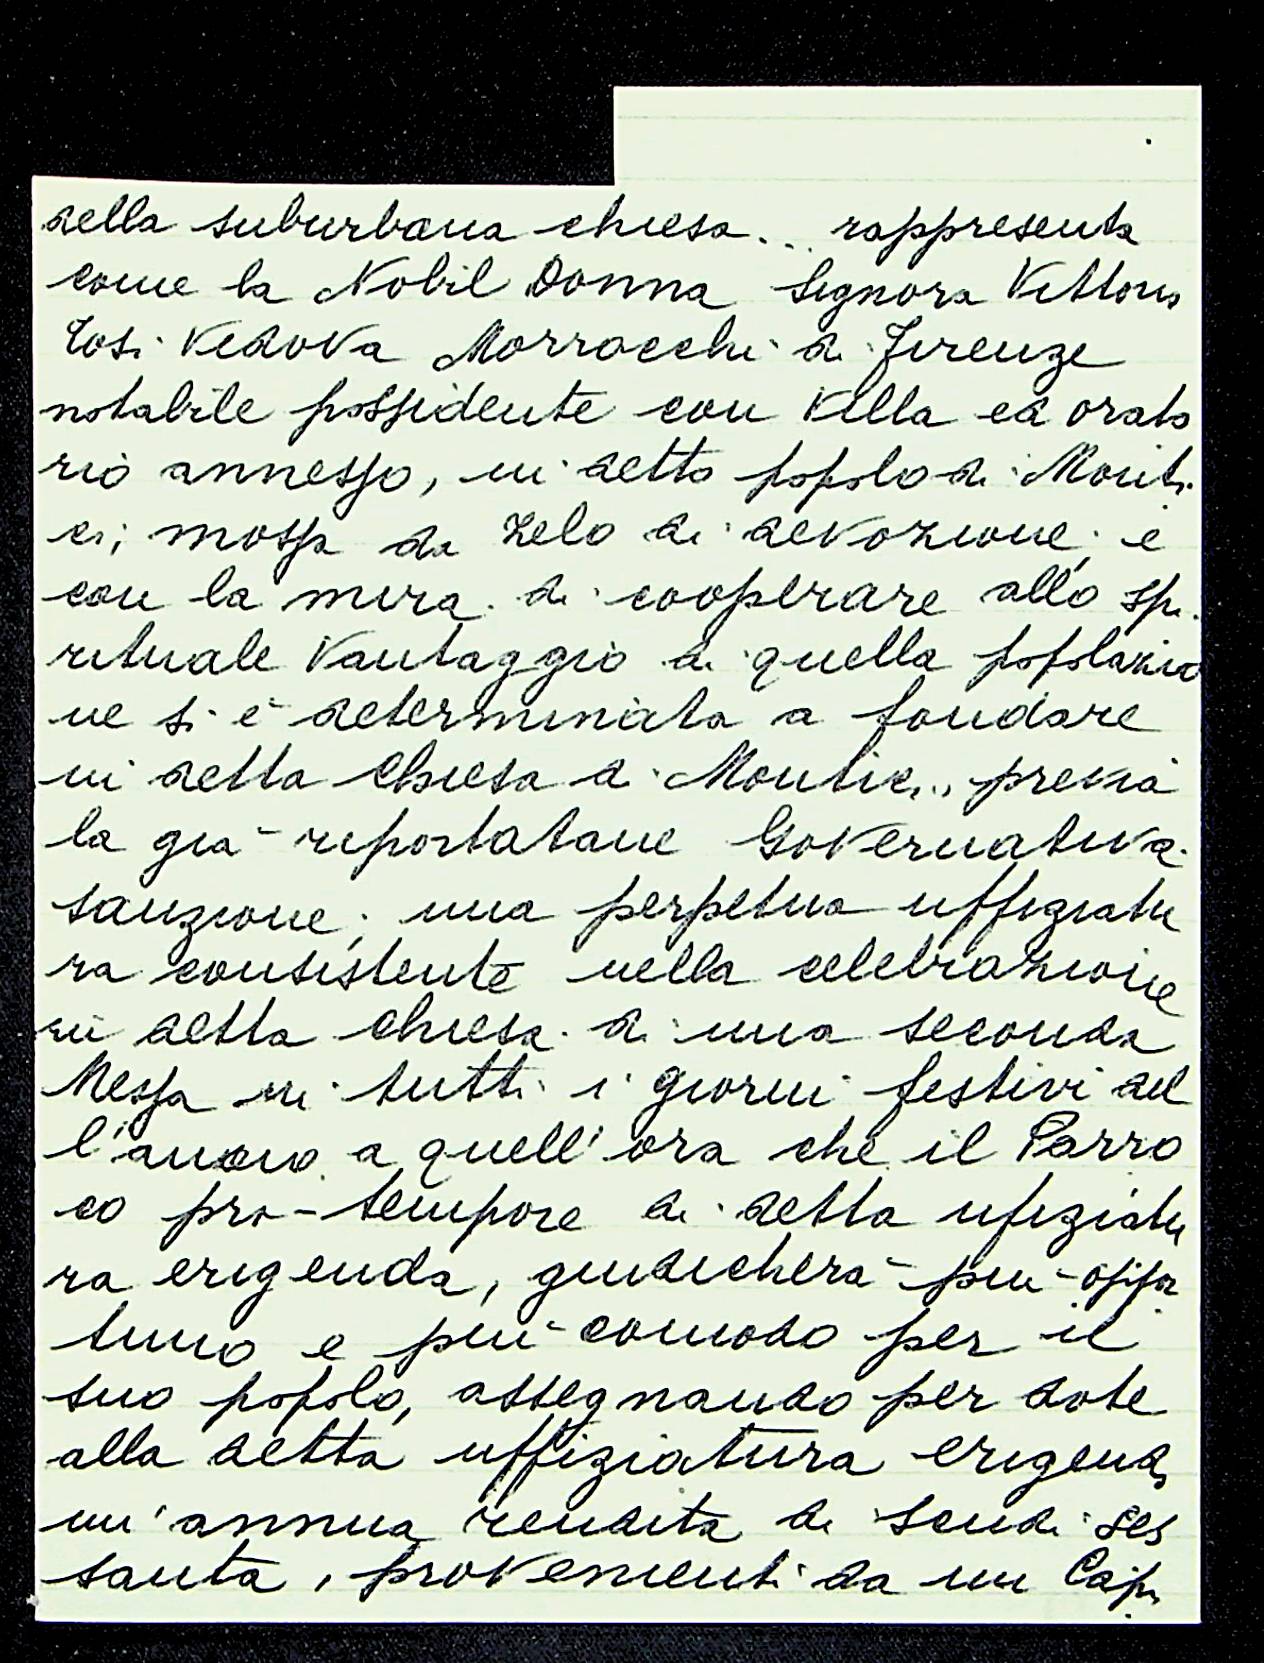 della suburbana chiesa... rappresenta
come la Nobil Donna Signora Vittoria
Tosi Vedova Morrocchi di Firenze
notabile possidente con Villa ed orato
rio annesso, in detto popolo di Monti
ci, mossa da zelo di devozione, e
con la mira di cooperare allo spi
rituale vantaggio di quella popolazio
ne si è determinata a fondare
in detta Chiesa di Montici, previa
la già riportatane Governativa
sanzione, una perpetua uffiziatu
ra consistente nella celebrazione
in detta chiesa di una seconda
Messa in tutti i giorni festivi del
l'anno a quell'ora che il Parro
co pro-tempore di detta ufiziatu
ra erigenda, giudicherà più oppor
tuno e più comodo per il
suo popolo, assegnando per dote
alla detta uffiziatura erigenda
un'annua rendita di scudi ses
santa, provenienti da un Capi